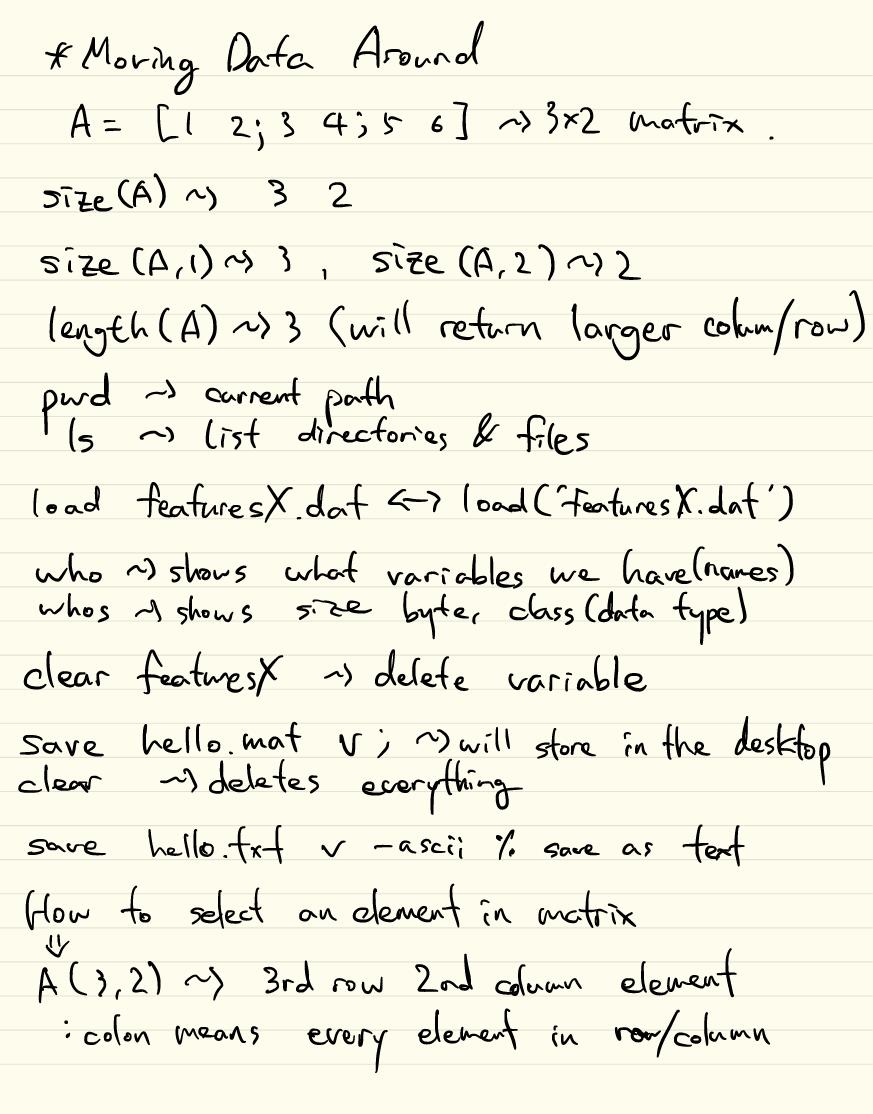 * Moving Data Around
A = [1 2; 3 4; 5 6] ~> 3×2 matrix.
size(A) ~> 3 2
size (A,1) ~> 3 , size (A,2) ~> 2
length(A) ~> 3 (will return larger colum/row)
pwd ~> current path
ls ~> list directories & files
load featuresX.dat <-> load('featuresX.dat')
who ~> shows what variables we have(names)
whos ~> shows size byte, class(data type)
clear featuresX ~> delete variable
save hello.mat v; ~> will store in the desktop
clear ~> deletes everything
save hello.txt v -ascii % save as text
How to select an element in matrix
⇓
A(3,2) ~> 3rd row 2nd column element
: colon means every element in row/column